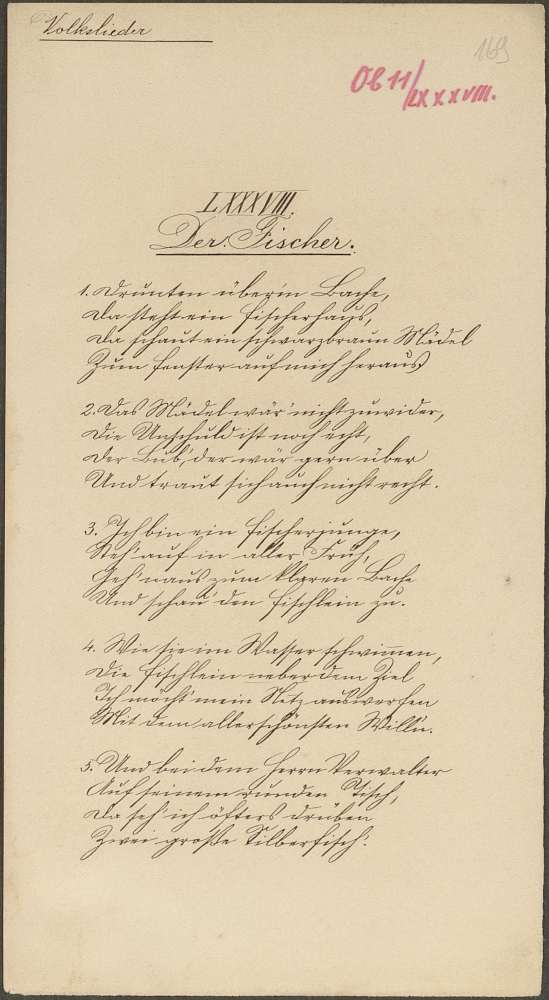 Volkslieder
169
Ob 11/LXXXVIII.
LXXXVIII.
Der Fischer.
1. Drunten überm Bache,
Da steht ein Fischerhaus,
Da schaut ein schwarzbraun Mädel
Zum Fenster auf mich heraus
2. Das Mädel wär' nicht zuwider,
Die Unschuld ist noch echt,
Der Bub', der wär gern über
Und traut sich auch nicht recht.
3. Ich bin ein Fischerjunge,
Steh' auf in aller Früh,
Geh' naus zum klaren Bache
Und schau' den Fischlein zu.
4. Wie sie im Wasser schwimmen,
Die Fischlein neber dem Ziel
Ich möcht' mein Netz auswerfen
Mit dem allerschönsten Will'n.
5. Und bei dem Herrn Verwalter
Auf seinem runden Tisch,
Da seh' ich öfters drüben
Zwei große Silberfisch'.